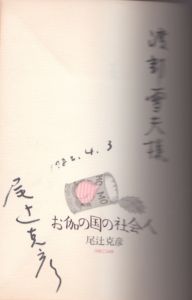 渡部雪夫様
1982.4.3
お伽の国の社会人
尾辻克彦
尾辻克彦